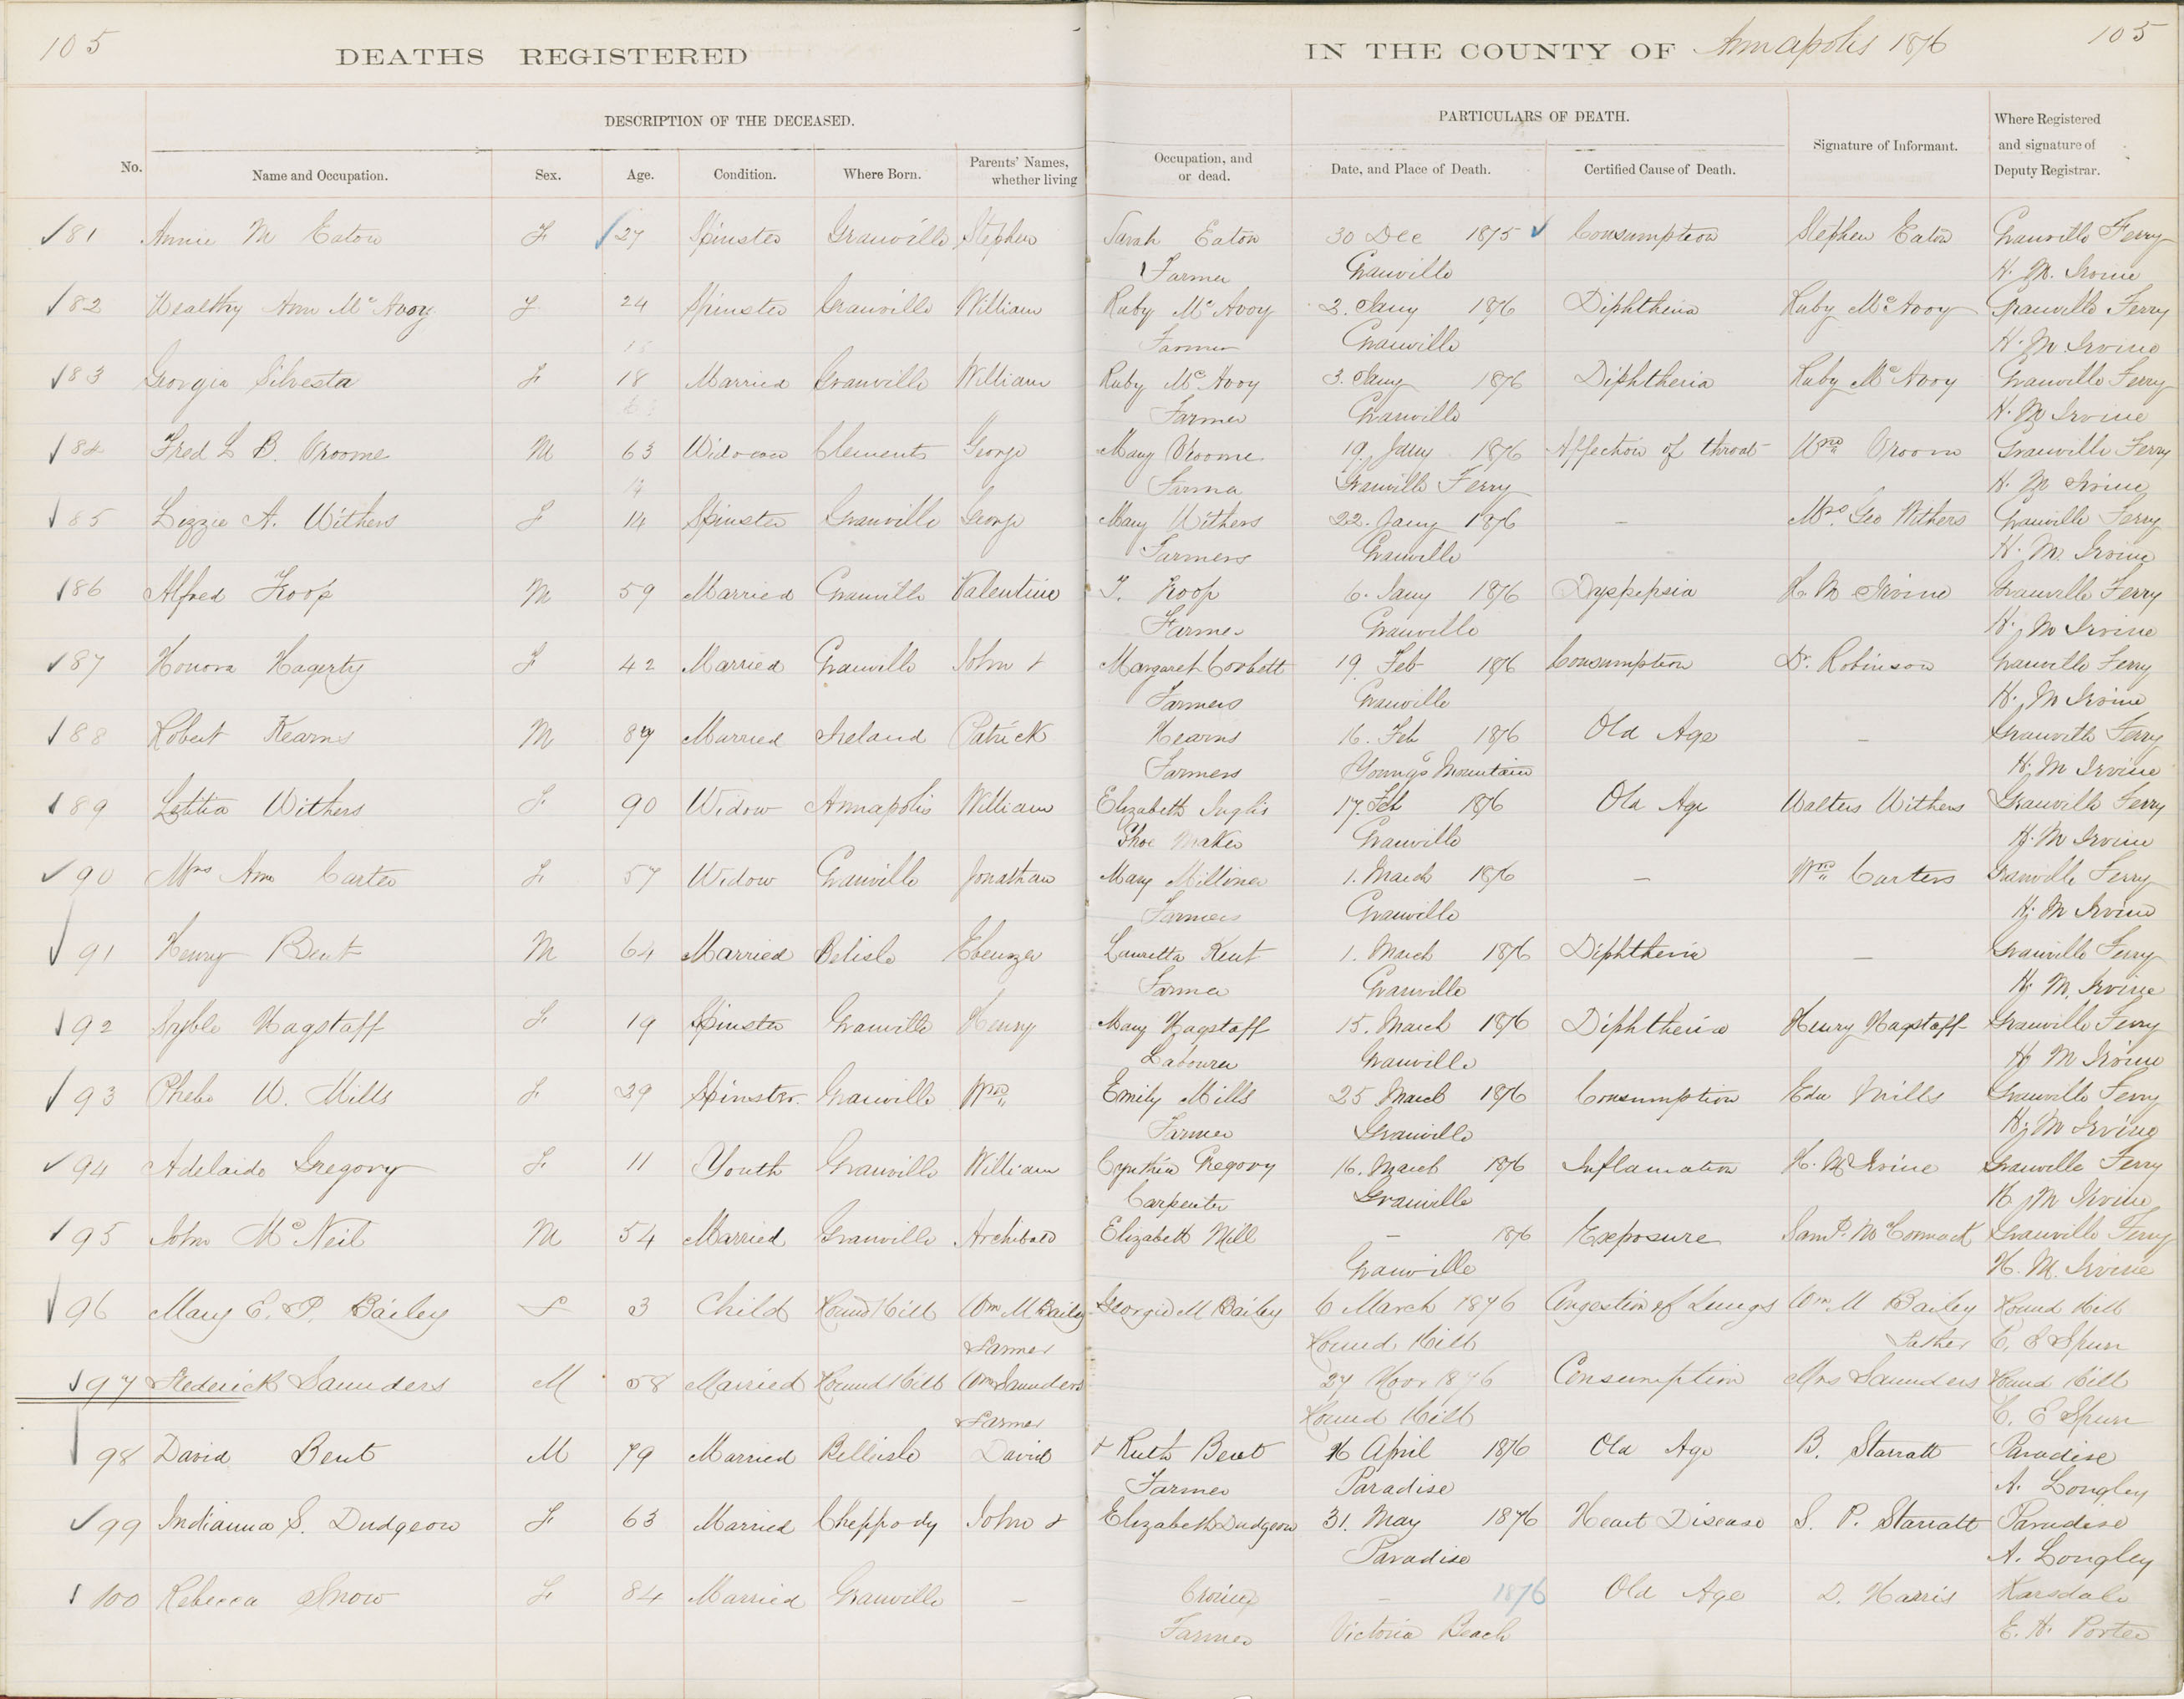 105
DEATHS REGISTERED
IN THE COUNTY OF Annapolis 1876
105
DESCRIPTION OF THE DECEASED.
PARTICULARS OF DEATH.
No. Name and Occupation. Sex. Age. Condition. Where Born. Parents' Names, whether living Occupation, and or dead. Date, and Place of Death. Certified Cause of Death. Signature of Informant. Where Registered and signature of Deputy Registrar.
81 Annie M Eaton F 27 Spinster Granville Stephen Sarah Eaton 30 Dec 1875 Consumption Stephen Eaton Granville Ferry
Farmer Granville H. M. Irvine
82 Wealthy Ann McAvoy F 24 Spinster Granville William Ruby McAvoy 2. Jany 1876 Diphtheria Ruby McAvoy Granville Ferry
Farmer Granville H. M Irvine
83 Georgia Silvesta F 18 Married Granville William Ruby McAvoy 3. Jany 1876 Diphtheria Ruby McAvoy Granville Ferry
Farmer Granville H. M Irvine
84 Fred L B. Vroome M 63 Widower Clements George Mary Vroome 19. Jany 1876 Affection of throat Wm Vroom Granville Ferry
Farma Granville Ferry H. M Irvine
85 Lizzie A. Withers F 14 Spinster Granville George Mary Withers 22. Jany 1876 – Mrs Geo Withers Granville Ferry
Farmers Granville H. M. Irvine
86 Alfred Troop M 59 Married Granville Valentine T. Troop 6. Jany 1876 Dyspepsia H. M Irvine Granville Ferry
Farmer Granville H. M Irvine
87 Honora Hagerty F 42 Married Granville John & Margaret Corbett 19. Feb 1876 Consumption Dr. Robinson Granville Ferry
Farmers Granville H. M Irvine
88 Robert Kearns M Married Ireland Patrick Kearns 16. Feb 1876 Old Age – Granville Ferry
Farmers Youngs Mountain H. M Irvine
89 Letitia Withers F 90 Widow Annapolis William Elizabeth Inglis 17. Feb 1876 Old Age Walters Withers Granville Ferry
Shoe Maker Granville H. M Irvine
90 Mrs Ann Carter F 57 Widow Granville Jonathan Mary Milliner 1. March 1876 – Wm Carters Granville Ferry
Farmers Granville H. M Irvine
91 Henry Bent M 64 Married Belisle Ebenezer Lauretta Kent 1. March 1876 Diphtheria – Granville Ferry
Farmer Granville H. M. Irvine
92 Syble Wagstaff F 19 Spinster Granville Henry Mary Wagstaff 15. March 1876 Diphtheria Henry Wagstaff Granville Ferry
Labourer Granville H. M Irvine
93 Phebe W. Mills F 29 Spinster Granville Wm Emily Mills 25 March 1876 Consumption Edw Mills Granville Ferry
Farmer Granville H. M Irvine
94 Adelaide Gregory F 11 Youth Granville William Cynthia Gregory 16. March 1876 Inflamation H. M Irvine Granville Ferry
Carpenter Granville H. M Irvine
95 John McNeil M 54 Married Granville Archibald Elizabeth Mill – 1876 Exposure Saml. McCormack Granville Ferry
Granville H. M. Irvine
96 Mary E. P. Bailey F 3 Child Round Hill Wm M Bailey Georgie M Bailey 6 March 1876 Congestion of Lungs Wm. M Bailey Round Hill
Farmer Round Hill Father C. E Spurr
97 Frederick Saunders M 58 Married Round Hill Wm Saunders 27 Novr 1876 Consumption Mrs Saunders Round Hill
Farmer Round Hill C. E Spurr
98 David Bent M 79 Married Belleisle David & Ruth Bent 16 April 1876 Old Age B. Starratt Paradise
Farmer Paradise A. Longley
99 Indianna S. Dudgeon F 63 Married Cheppody John & Elizabeth Dudgeon 31. May 1876 Heart Disease S. P. Starratt Paradise
Paradise A. Longley
100 Rebecca Snow F 84 Married Granville – Croup – 1876 Old Age D. Harris Karsdale
Farmer Victoria Beach E. H. Porter